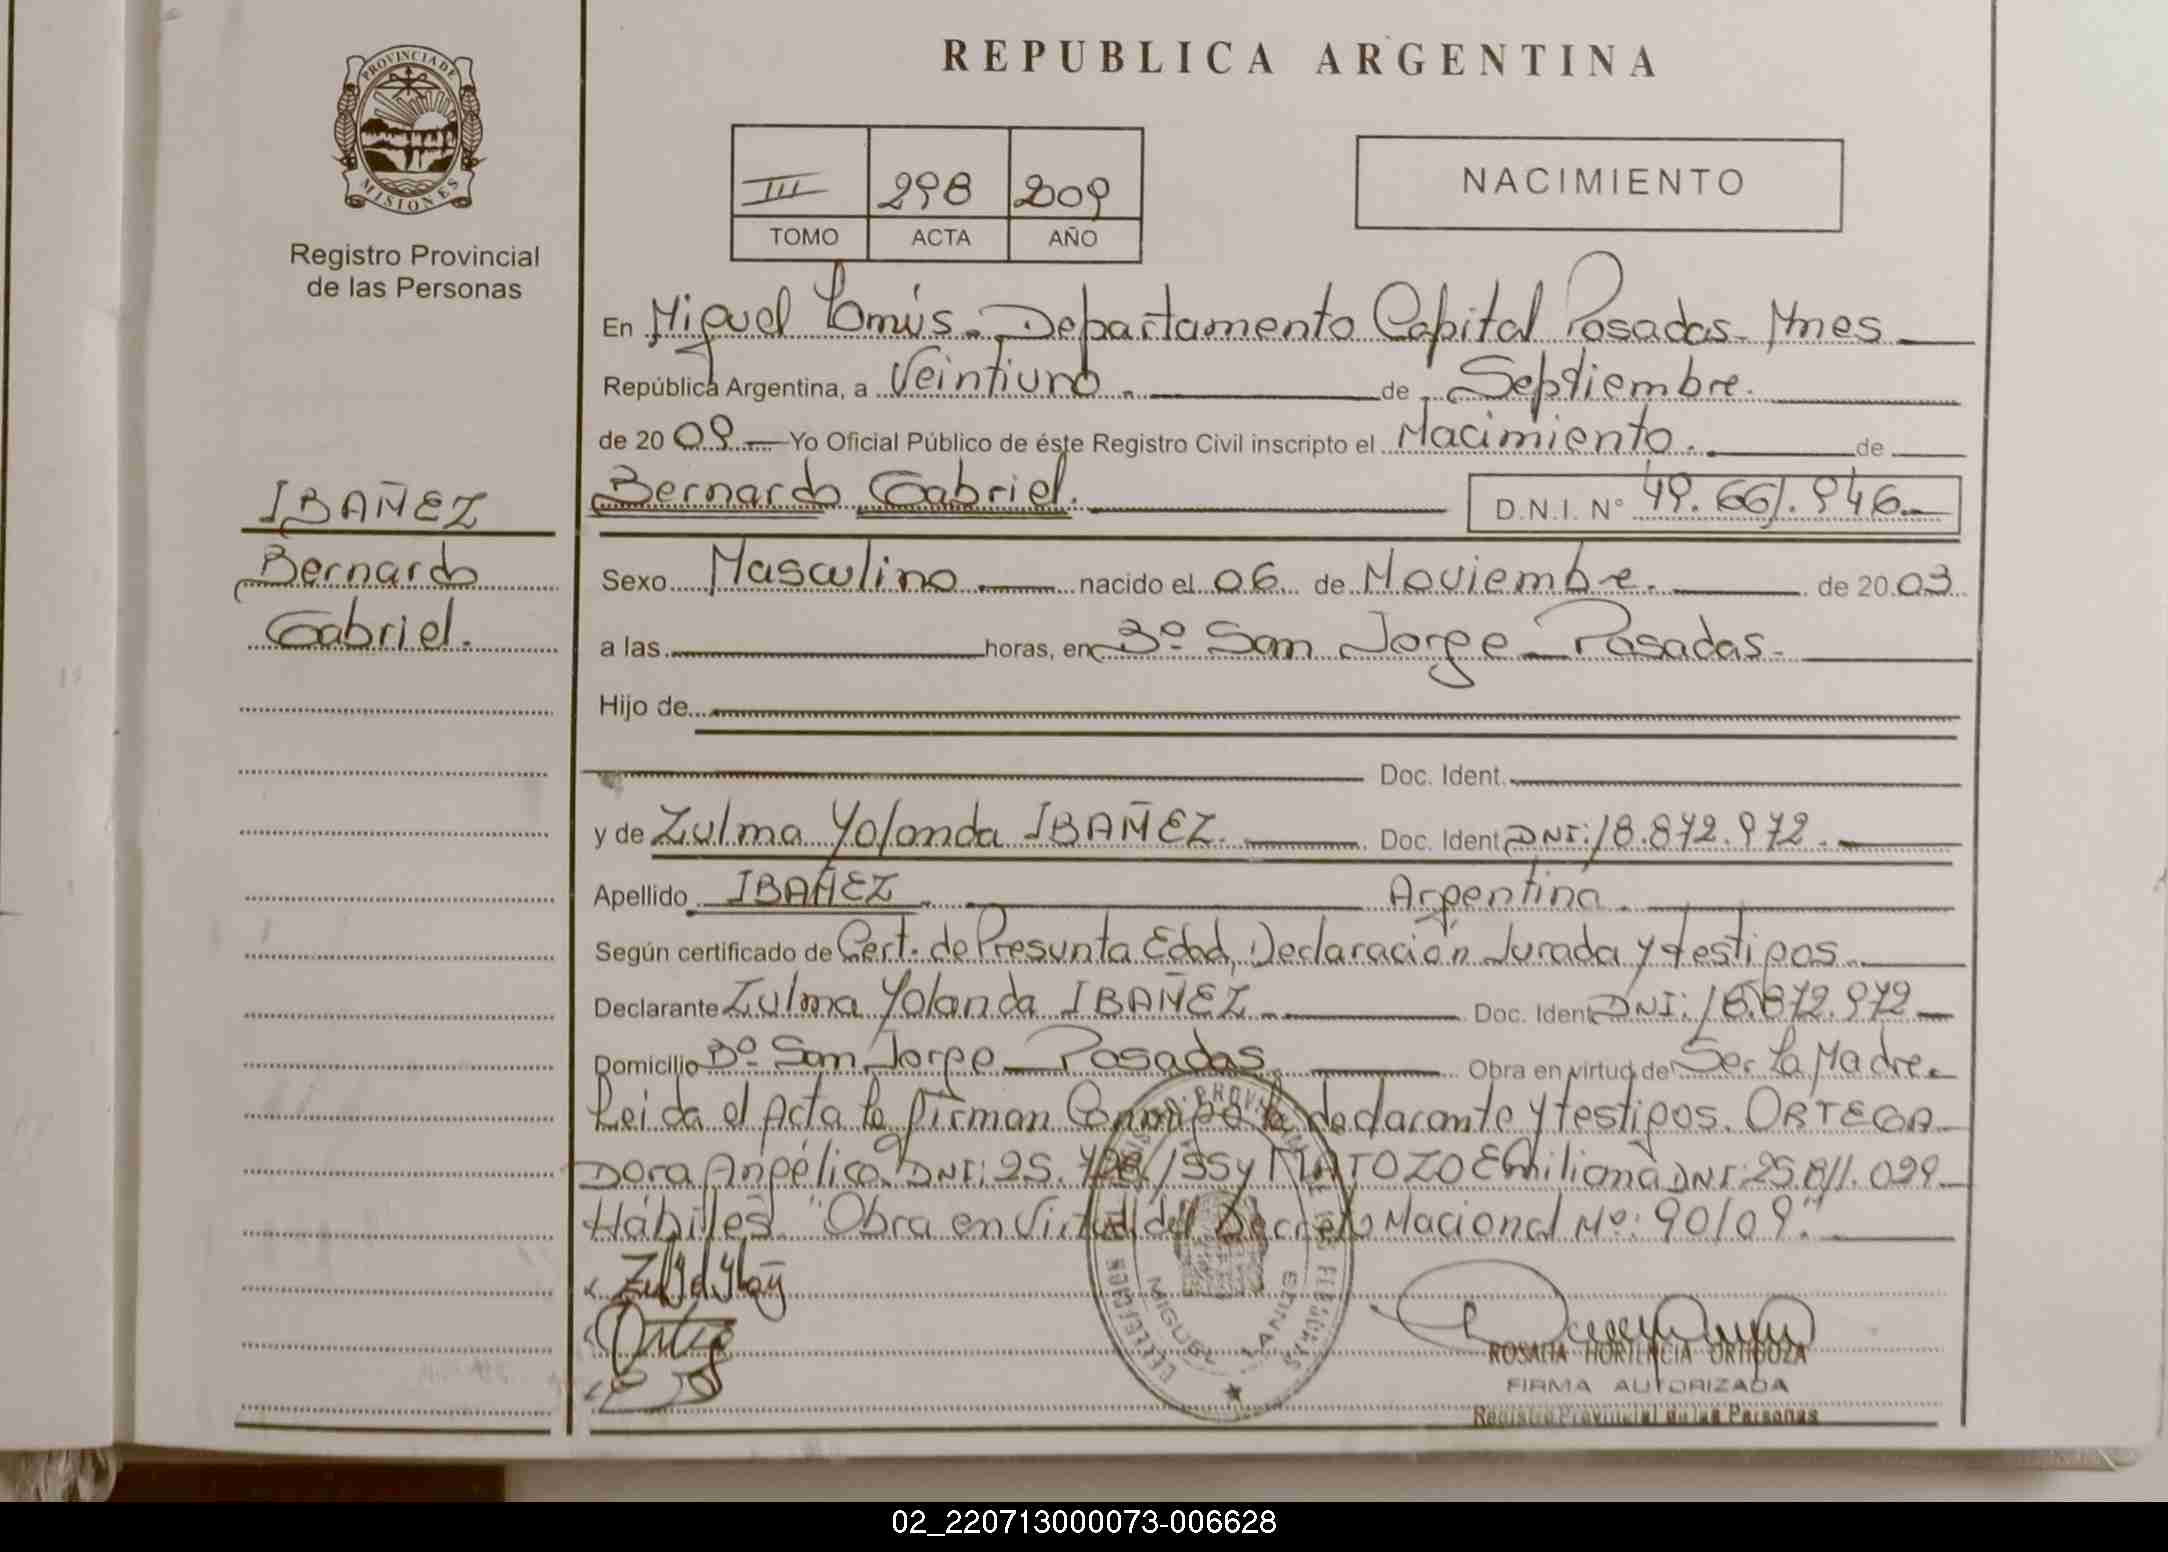 REPUBLICA ARGENTINA
PROVINCIA DE
MISIONES
Registro Provincial
de las Personas
III 298 2009
TOMO ACTA AÑO
NACIMIENTO
En Miguel Lanús. Departamento Capital Posadas. Mnes
República Argentina, a Veintiuno. de Septiembre.
de 20 09 Yo Oficial Público de éste Registro Civil inscripto el Nacimiento. de
Bernardo Gabriel. D.N.I. N° 49.661.946
IBAÑEZ
Bernardo
Gabriel.
Sexo Masculino nacido el 06 de Noviembre. de 20 03
a las horas, en Bº San Jorge Posadas.
Hijo de
Doc. Ident.
y de Zulma Yolanda IBAÑEZ. Doc. Ident DNI: 18.872.972.
Apellido IBAÑEZ. Argentina.
Según certificado de Cert. de Presunta Edad, Declaración Jurada y testigos.
Declarante Zulma Yolanda IBAÑEZ. Doc. Ident DNI: 18.872.972
Domicilio Bº San Jorge Posadas. Obra en virtud de Ser La Madre.
Leida el Acta la firman Conmigo la declarante y testigos. ORTEGA
Dora Angélica DNI: 25. y MATOZO Emiliana DNI: 25.811.029
Hábiles. "Obra en Virtud del Decreto Nacional Nº: 90/09."
MIGUEL LANUS
ROSALIA HORTENCIA ORTIGOZA
FIRMA AUTORIZADA
Registro Provincial de las Personas
02_220713000073-006628